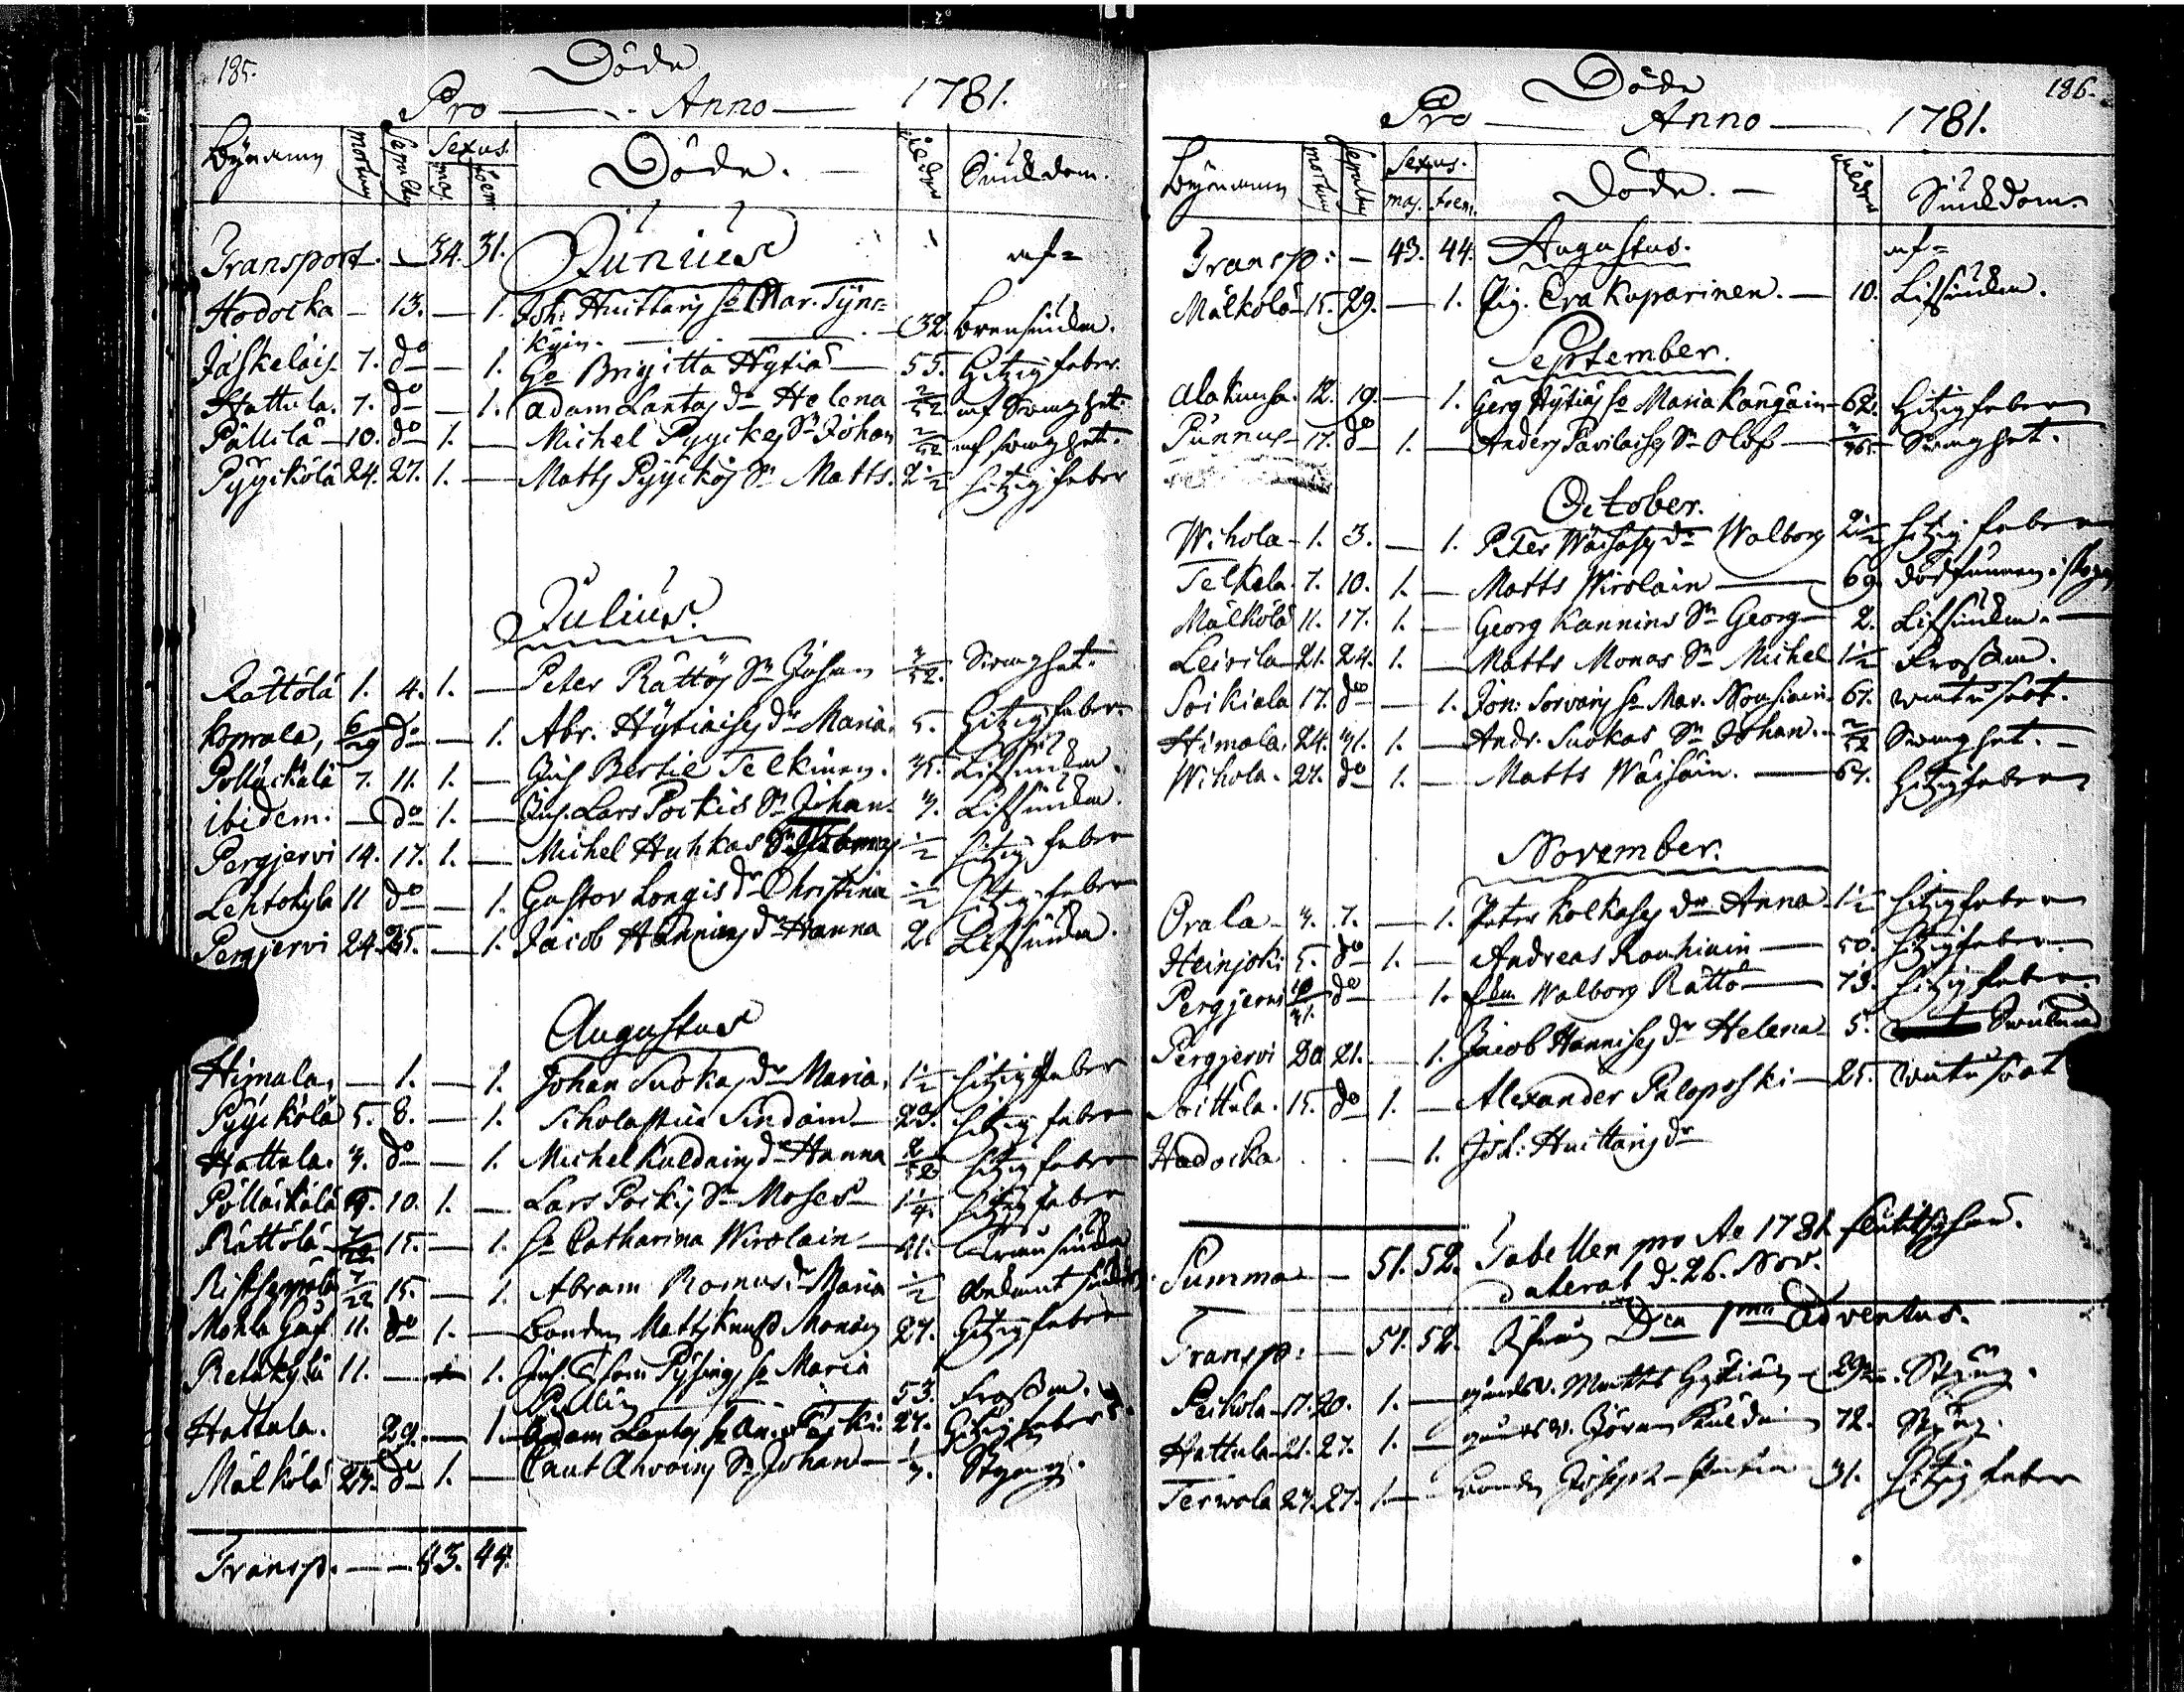 185.
Döde
Pro — Anno — 1781.
Bynamn mortuus Sepultus Sexus. mas. foem. Döde. — ålder Siukdom.
Transport. — 34. 31. Junius af=
Hodocka — 13. — 1. Joh: Huittaris h: Mar. Tyne=
kyin. — 32. brensiukan.
Jäskeläis. 7. do — 1. Ge Brigitta Hytiä — 55. hitzig feber.
Hattula. 7. do — 1. Adam Lantas dr Helena 2/52. af swaghet.
Pällilä — 10. do 1. — Michel Pyyckes Sn Johan 2/52 af swaghet.
Pyyickölä 24. 27. 1. — Matts Pyyckös Sn Matts. 2 1/2 hitzig feber
Julius.
Rättölä 1. 4. 1. — Peter Rättös Sn Johan 3/52. Swaghet.
Koprala, 6/29 do — 1. Abr. Hytiäises dr Maria. 5. hitzig feber.
Pölläckälä 7. 11. 1. — Inh Bertil Telkinen. 35. Lifsiukan.
ibidem. — do 1. — Inh. Lars Pockis Sn Johan. 3. Lifsiukan.
Pergjervi 14. 17. 1. — Michel Huhkas Sn Thomas 1/2 hitzig feber
Lehtokylä 11 do — 1. Gustav Longis dr Christina 1/2 hitzig feber
Pergjervi 24. 25. — 1. Jacob Hannines dr Hanna 2. Lifsiukan.
Augustus
Himala. — 1. — 1. Johan Suokas dr Maria. 1 1/2 hitzig feber
Pyyickölä 5. 8. — 1. Scholastica Sindäin — 23. hitzig feber
Hattula. 3. do — 1. Michel Kuldains dr Hanna 2/52 hitzig feber
Pölläckälä 9. 10. 1. — Lars Pockis Sn Moses — 1 1/4. hitzig feber
Rättölä 15. — 1. h: Catharina Wirolain — 41.
7/22 15. — 1. Abram Romus dr Maria 1/2
Mohla Gåf. 11. do 1. — Bonden Matts Knuts Monoin 27. hitzig feber
Retukylä 11. — 1. Inh. Thom Pysings h: Maria
53. frossan.
Hattula. 29. — 1. Adam Lantas h: An. 27. hitzig feber.
Mälkölä 23. do 1. — Cnut Ahvoins Sn Johan — 1/3. Styng.
Transp. — — 43. 44.
186.
Döde
Pro — Anno — 1781.
Bynamn mortuus Sepultus Sexus. mas. foem. Döde. — ålder Siukdom.
Transp: — 43. 44. Augustus. af=
Mälkölä 15. 29. — 1. Pig. Eva Kaparinen. — 10. Lifsiukan.
September.
Alakusa. 12. 19. — 1. Georg Hytiäs h: Maria Kangain — 62. hitzig feber
Punnus — 17. do 1. — Anders Pavilaises Sn Olof — Swaghet.
October.
Wihola — 1. 3. — 1. Peter Wäisäses dr Walborg 2 1/2 hitzig feber
Telkela. 7. 10. 1. — Matts Wirolain — 69. död funnen i skogen
Mälkölä 11. 17. 1. — Georg Kannins Sn Georg — 2. Lifsiukan. —
Leivila — 21. 24. 1. — Matts Monos Sn Michel 1 1/2 frossan.
Soikiala 17. do — 1. Jon: Sorvaris h: Mar. Nousiain 67. wattusoot.
Himala. 24. 31. 1. — Andr. Suokas Sn Johan. — 2/52 Swaghet. —
Wihola. 27. do 1. — Matts Wäisäin. — 67. hitzig feber
November.
Orala — 3. 7. — 1. Peter Kolkases dr Anna 1 1/2 hitzig feber
Heinjoki 5. do 1. — Andreas Rouhiain — 50. hitzig feber.
Pergjervi 10/31. do — 1. Walborg Rättö — 73. hitzig feber.
Pergjervi 20 21. — 1. Jacob Hannises dr Helena — 5.
Soittula. 15. do 1. — Alexander Paloposki — 25. wattusoot
Hodocka. . . — 1. Joh: Huittaris dr
Summa — 51. 52. Tabellen pro Ao 1781
daterat d. 26. Nov.
Transp: — 51. 52. Ifrån Dca 1ma Adventus.
Peikola — 17. 20. 1. — Matts Hytiäin — Styng.
Hattula 21. 27. 1. — Jöran Kuldain 72. Styng.
Terwola 23. 27. 1. — Bonden Joseph 31. hitzig feber